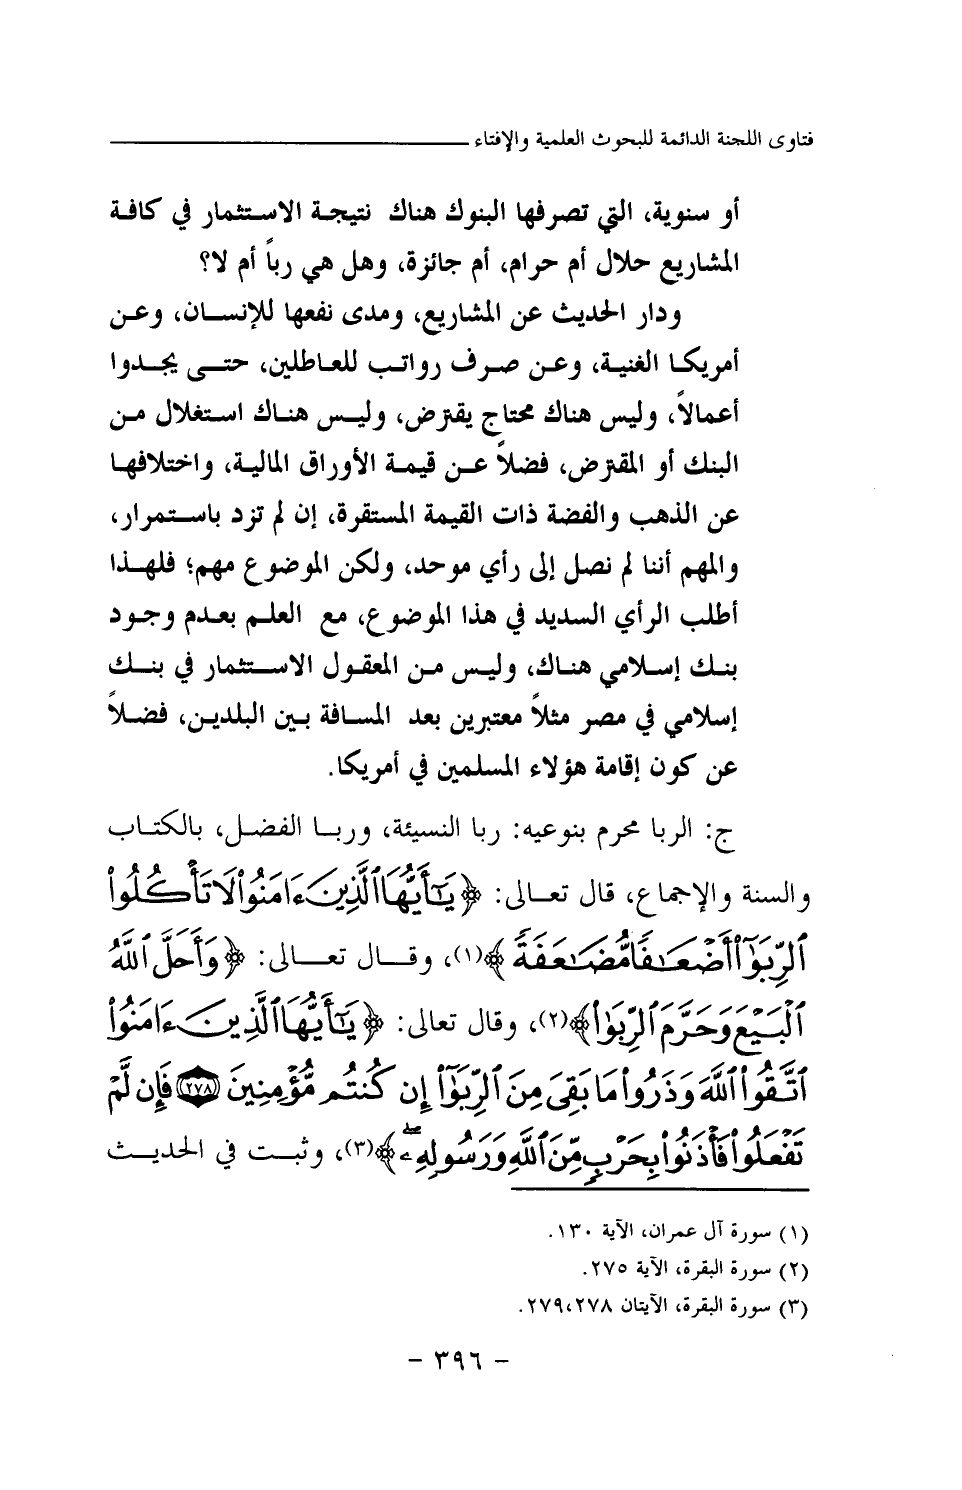 فتاوى اللجنة الدائمة للبحوث العلمية والإفتاء
أو سنوية، التي تصرفها البنوك هناك نتيجة الاستثمار في كافة
المشاريع حلال أم حرام، أم جائزة، وهل هي رباً أم لا؟
ودار الحديث عن المشاريع، ومدى نفعها للإنسان، وعن
أمريكا الغنية، وعن صرف رواتب للعاطلين، حتى يجدوا
أعمالاً، وليس هناك محتاج يقترض، وليس هناك استغلال من
البنك أو المقترض، فضلاً عن قيمة الأوراق المالية، واختلافها
عن الذهب والفضة ذات القيمة المستقرة، إن لم تزد باستمرار،
والمهم أننا لم نصل إلى رأي موحد، ولكن الموضوع مهم؛ فلهذا
أطلب الرأي السديد في هذا الموضوع، مع العلم بعدم وجود
بنك إسلامي هناك، وليس من المعقول الاستثمار في بنك
إسلامي في مصر مثلاً معتبرين بعد المسافة بين البلدين، فضلاً
عن كون إقامة هؤلاء المسلمين في أمريكا.
ج: الربا محرم بنوعيه: ربا النسيئة، وربا الفضل، بالكتاب
والسنة والإجماع، قال تعالى: ﴿يَٰٓأَيُّهَا ٱلَّذِينَ ءَامَنُوا۟ لَا تَأْكُلُوا۟
ٱلرِّبَوٰٓا۟ أَضْعَٰفًا مُّضَٰعَفَةً﴾(١)، وقال تعالى: ﴿وَأَحَلَّ ٱللَّهُ
ٱلْبَيْعَ وَحَرَّمَ ٱلرِّبَوٰا۟﴾(٢)، وقال تعالى: ﴿يَٰٓأَيُّهَا ٱلَّذِينَ ءَامَنُوا۟
ٱتَّقُوا۟ ٱللَّهَ وَذَرُوا۟ مَا بَقِىَ مِنَ ٱلرِّبَوٰٓا۟ إِن كُنتُم مُّؤْمِنِينَ ٢٧٨ فَإِن لَّمْ
تَفْعَلُوا۟ فَأْذَنُوا۟ بِحَرْبٍ مِّنَ ٱللَّهِ وَرَسُولِهِۦ﴾(٣)، وثبت في الحديث
(١) سورة آل عمران، الآية ١٣٠.
(٢) سورة البقرة، الآية ٢٧٥.
(٣) سورة البقرة، الآيتان ٢٧٩،٢٧٨.
- ٣٩٦ -